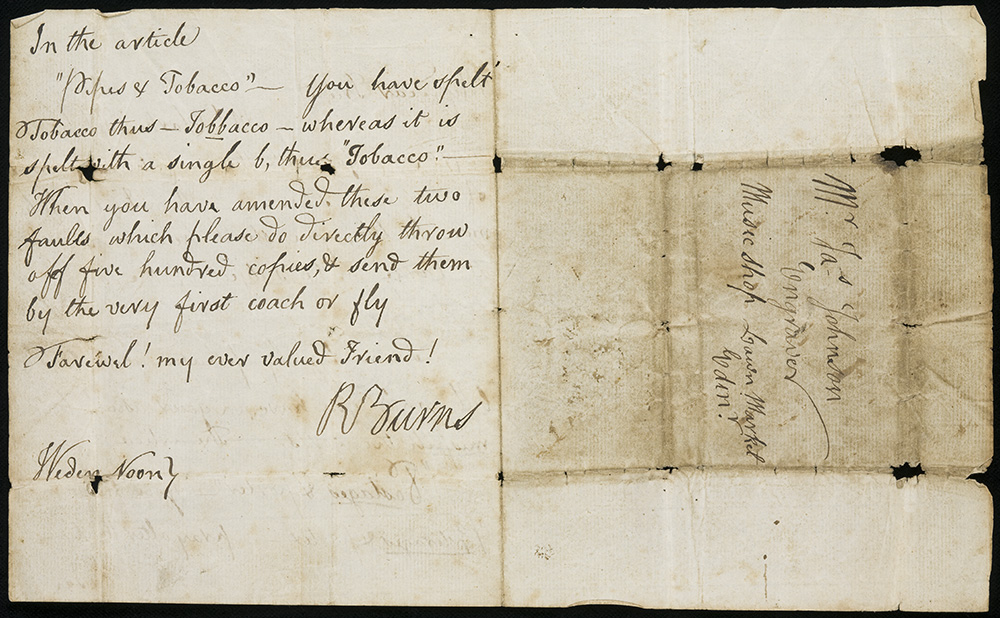 In the article
"Pipes & Tobacco" — You have spelt
Tobacco thus — Tobbacco — whereas it is
spelt with a single b, thus "Tobacco". —
When you have amended these two
faults which please do directly throw
off five hundred copies, & send them
by the very first coach or fly
Farewel! my ever valued Friend!
RBurns
Weden Noon}
Mr Jas Johnson
Engraver
Music Shop Lawn Market
Edinr